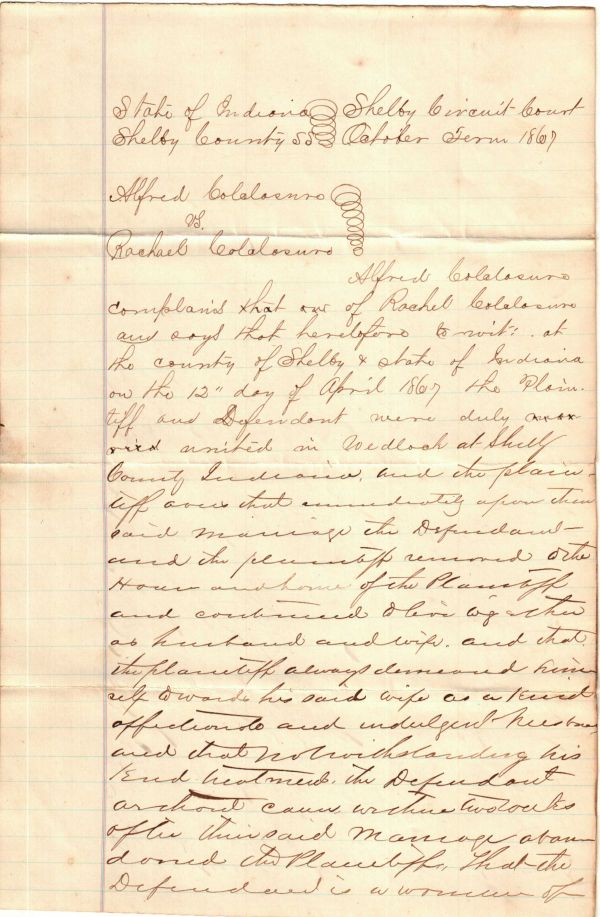 State of Indiana Shelby Circuit Court
Shelby County SS October Term 1867
Alfred Coldosuro
vs.
Rachael Coldosuro
Alfred Coldosuro
complains that of Rachel Coldosuro
and says that heretofore to wit: at
the county of Shelby & state of Indiana
on the 12" day of April 1867 the Plain-
tiff and Defendant were duly mar
ried united in Wedlock at Shelby
County Indiana, and the plain-
tiff avers that immediately upon their
said marriage the Defendant
and the plaintiff removed to the
House and home of the Plaintiff
and continued to live together
as husband and wife. and that
the plaintiff always demeaned him
self towards his said wife as a kind
affectionate and indulgent husband
and that notwithstanding his
kind treatment the Defendant
without cause within two weeks
after their said marriage aban
doned the Plaintiff. That the
Defendant is a woman of